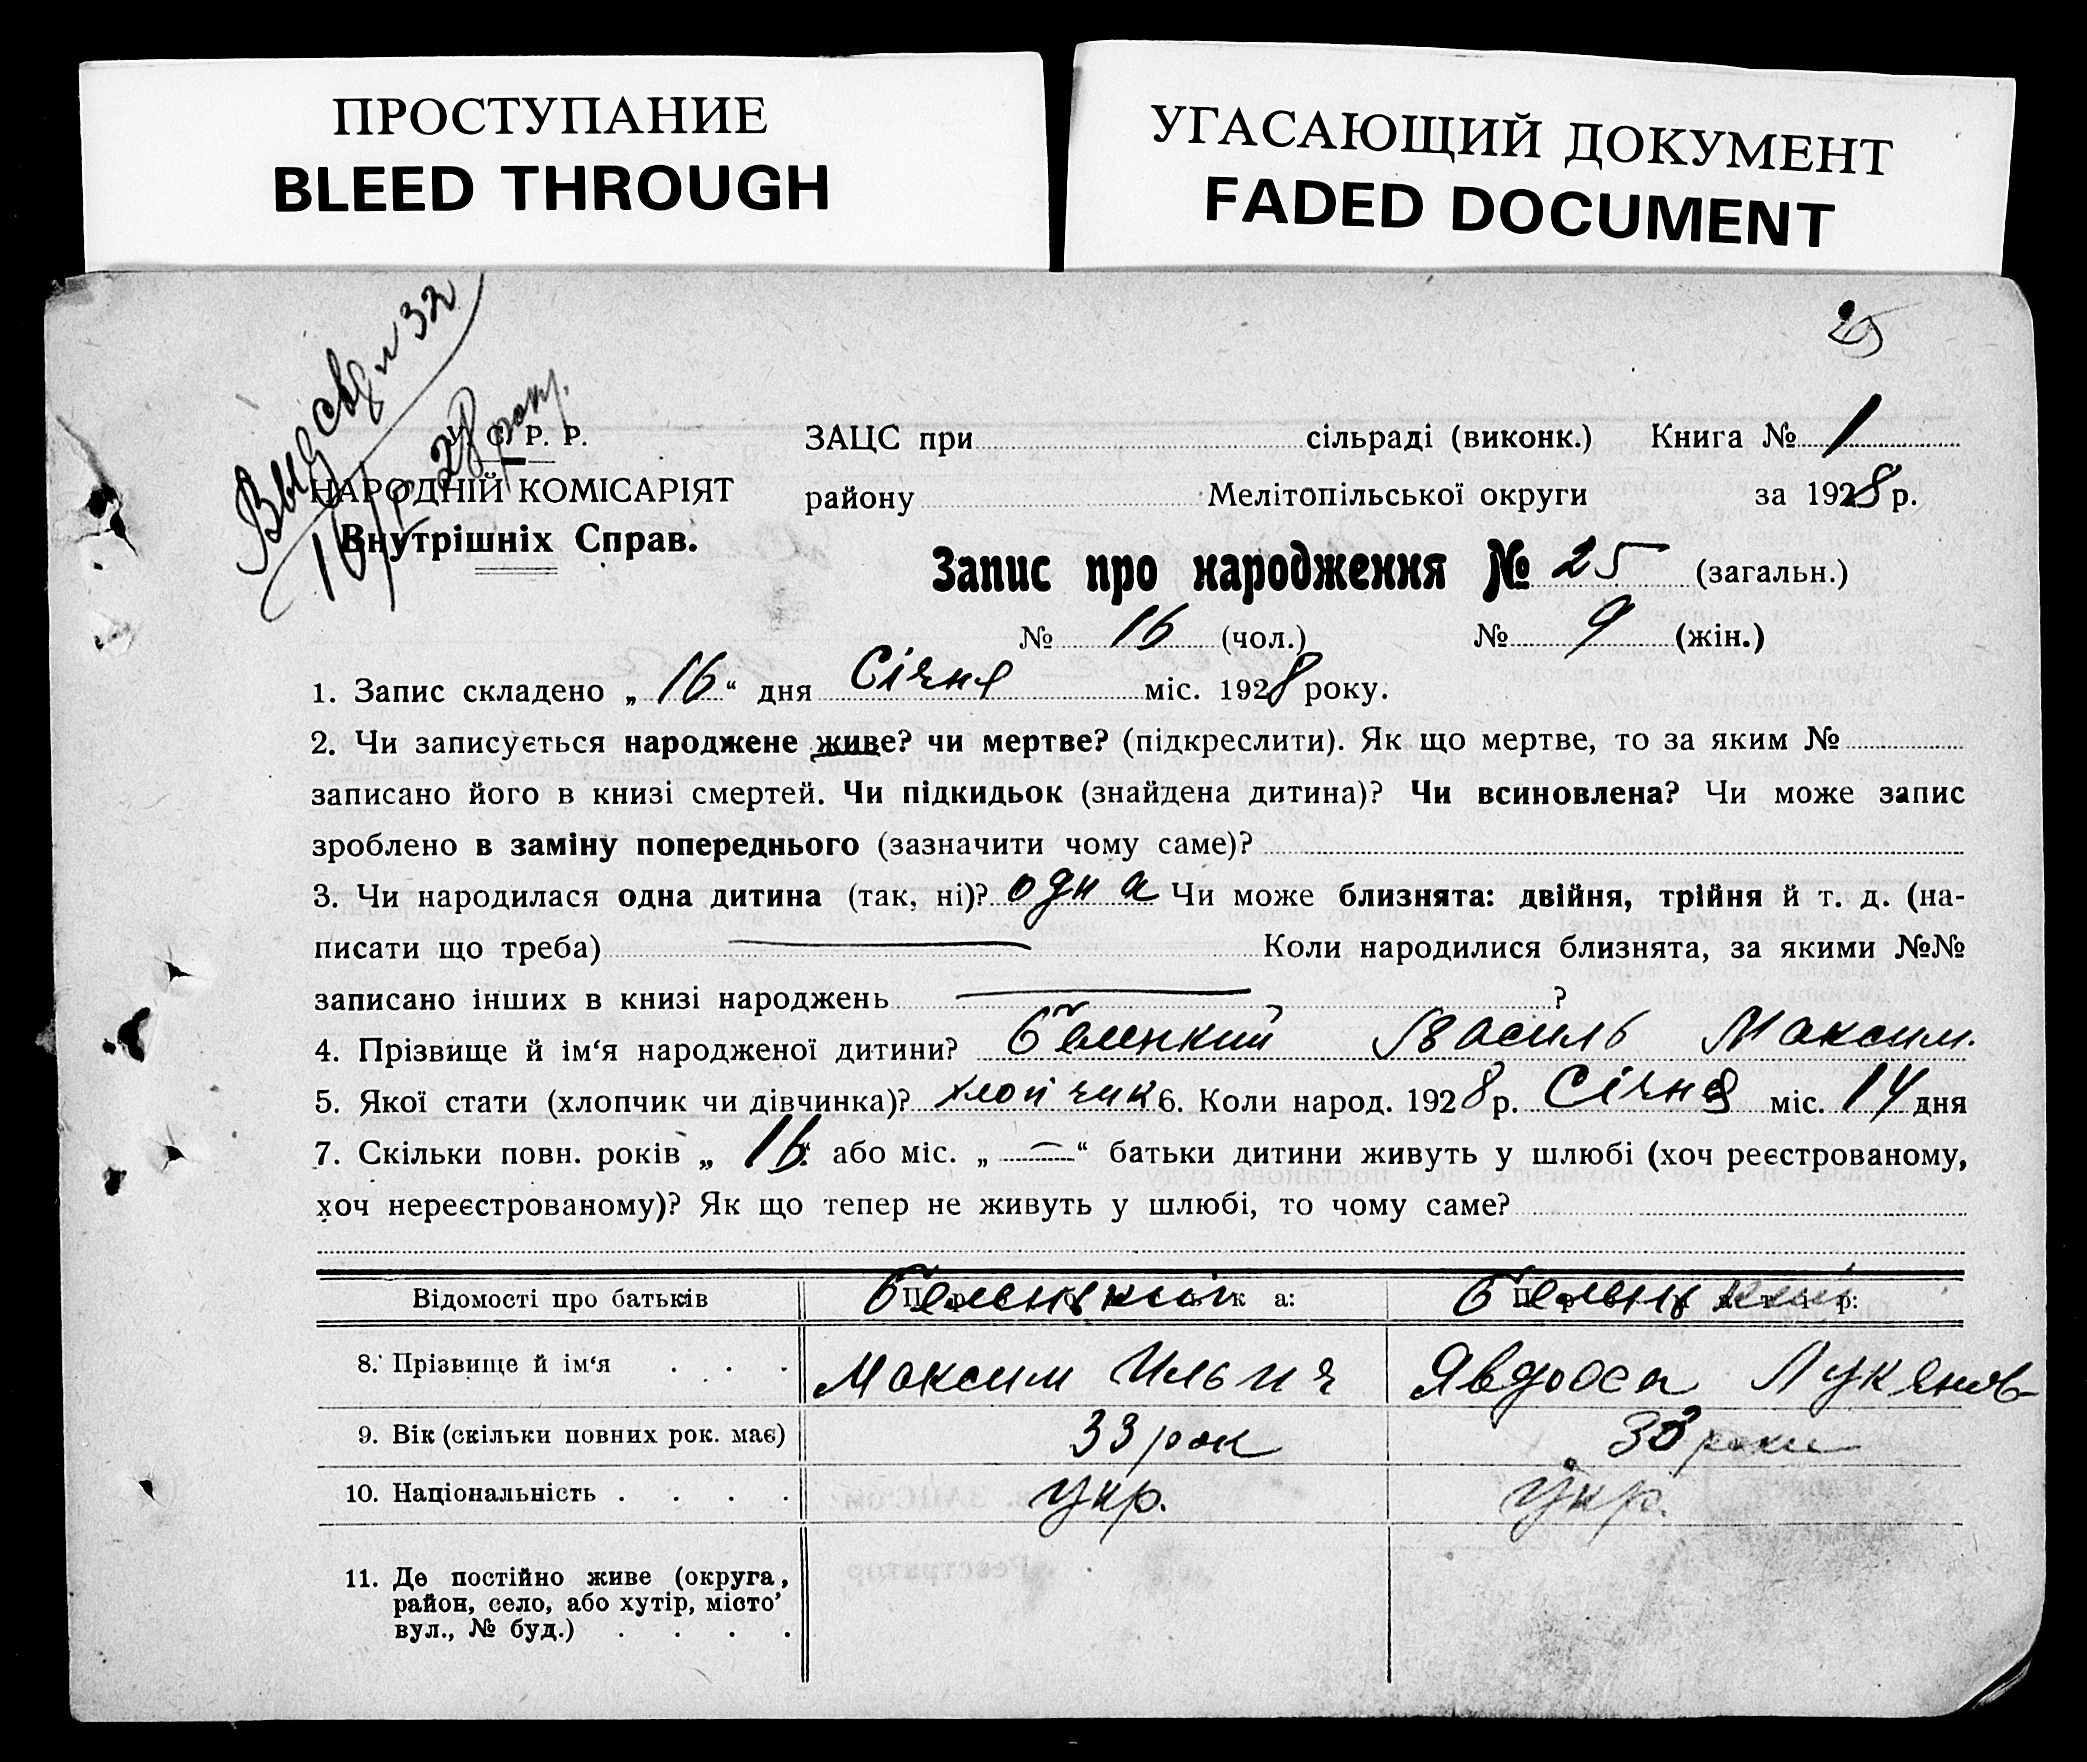 ПРОСТУПАНИЕ
BLEED THROUGH
УГАСАЮЩИЙ ДОКУМЕНТ
FADED DOCUMENT
25
Выд свд № 32
16/I 28 року.
У. С. Р. Р.
НАРОДНІЙ КОМІСАРІЯТ
Внутрішніх Справ.
ЗАЦС при сільраді (виконк.) Книга № 1
району Мелітопільської округи за 1928 р.
Запис про народження № 25 (загальн.)
№ 16 (чол.) № 9 (жін.)
1. Запис складено „ 16 “ дня Січня міс. 1928 року.
2. Чи записується народжене живе? чи мертве? (підкреслити). Як що мертве, то за яким №
записано його в книзі смертей. Чи підкидьок (знайдена дитина)? Чи всиновлена? Чи може запис
зроблено в заміну попереднього (зазначити чому саме)?
3. Чи народилася одна дитина (так, ні)? одна Чи може близнята: двійня, трійня й т. д. (на-
писати що треба) Коли народилися близнята, за якими №№
записано інших в книзі народжень ?
4. Прізвище й ім‘я народженої дитини? Василь Максим.
5. Якої стати (хлопчик чи дівчинка)? хлопчик 6. Коли народ. 1928 р. Січня міс. 14 дня
7. Скільки повн. років „ 16 “ або міс. „ — “ батьки дитини живуть у шлюбі (хоч реєстрованому,
хоч нереєстрованому)? Як що тепер не живуть у шлюбі, то чому саме?
Відомості про батьків
8. Прізвище й ім‘я . . . Максим Ильич Явдоса Лукянов
9. Вік (скільки повних рок. має) 33 рок 33 роки
10. Національність . . . . укр. укр.
11. Де постійно живе (округа,
район, село, або хутір, місто’
вул., № буд.) . . . .